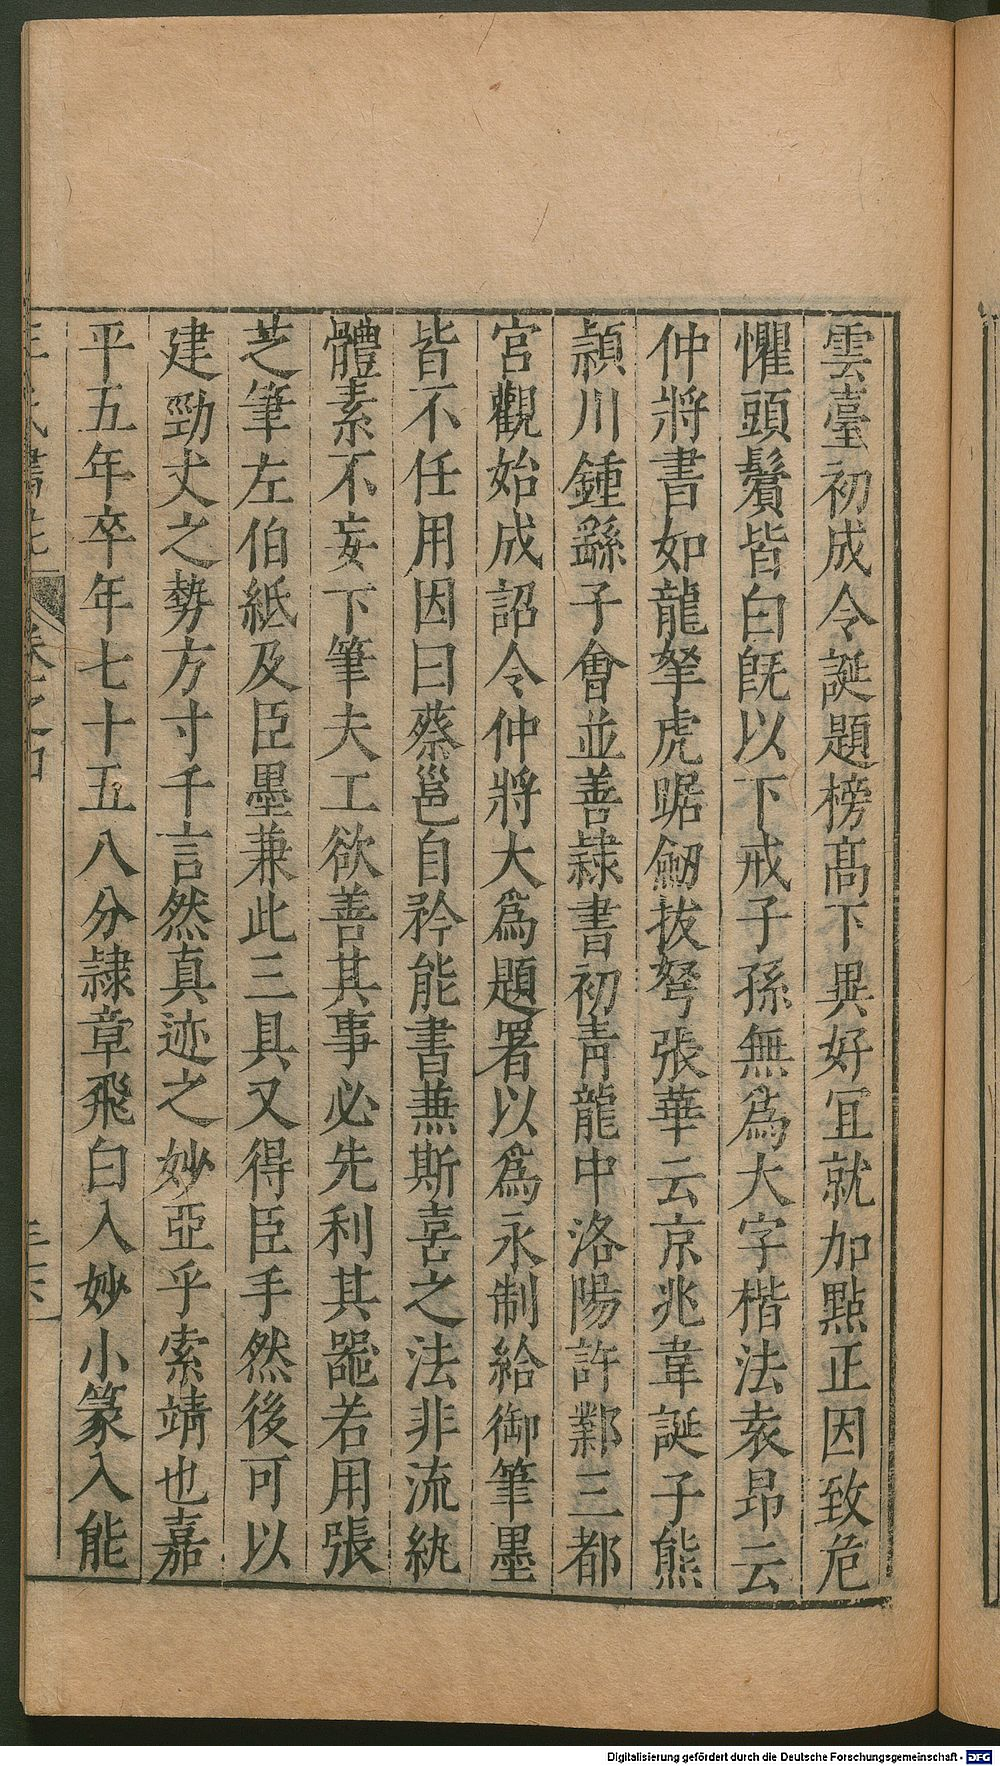 雲臺初成令誕題榜髙下異好冝就加點正因致危
懼頭鬢皆白既以下戒子孫無爲大字楷法袁昂云
仲將書如龍拏虎踞劒拔弩張華云京兆韋誕子熊
潁川鍾繇子會並善隷書初青龍中洛陽許鄴三都
宮觀始成詔令仲將大爲題署以爲永制給御筆墨
皆不任用因曰蔡邕自矜能書兼斯喜之法非流紈
體素不妄下筆夫工欲善其事必先利其器若用張
芝筆左伯紙及臣墨兼此三具又得臣手然後可以
建勁丈之勢方寸千言然真迹之妙亞乎索靖也嘉
平五年卒年七十五八分隷章飛白入妙小篆入能
王氏書苑 卷之四
Digitalisierung gefördert durch die Deutsche Forschungsgemeinschaft - DFG